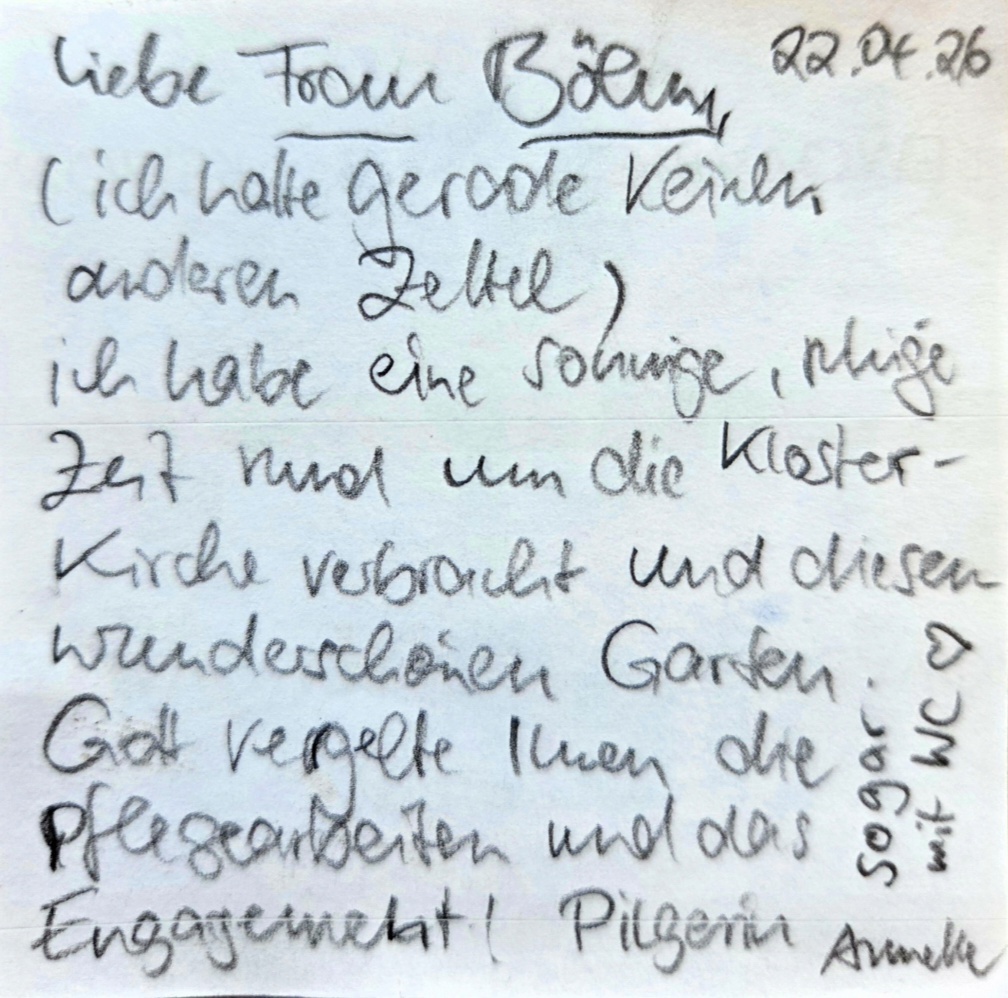 22.04.26
Liebe Frau Böhm,
(ich hatte gerade keinen
anderen Zettel)
ich habe eine sonnige, ruhige
Zeit rund um die Kloster-
Kirche verbracht und diesen
wunderschönen Garten.
Gott vergelte Ihnen die
Pflegearbeiten und das
Engagement! Pilgerin
sogar
mit WC ♡